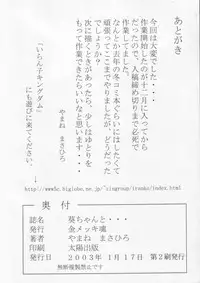 あとがき
今回は大変でした・・・
作業開始したのが十二月に入ってから
だったので、入稿締め切りまで必死で
作業してました。
なんとか去年の冬コミ本ぐらいにはしたくて
頑張ってここまでやりましたが、どうだった
でしょうか？
次に描くときがあったら、少しはゆとりを
もって作業できたらいいなと思います。
やまね　まさひろ
「いちん子キングダム」
にも遊びに来てください。
奥　付
誌名　葵ちゃんと・・・
発行　金メッキ魂
著者　やまね　まさひろ
印刷　太陽出版
発行日　２００３年　１月１７日　第２刷発行
無断複製禁止です